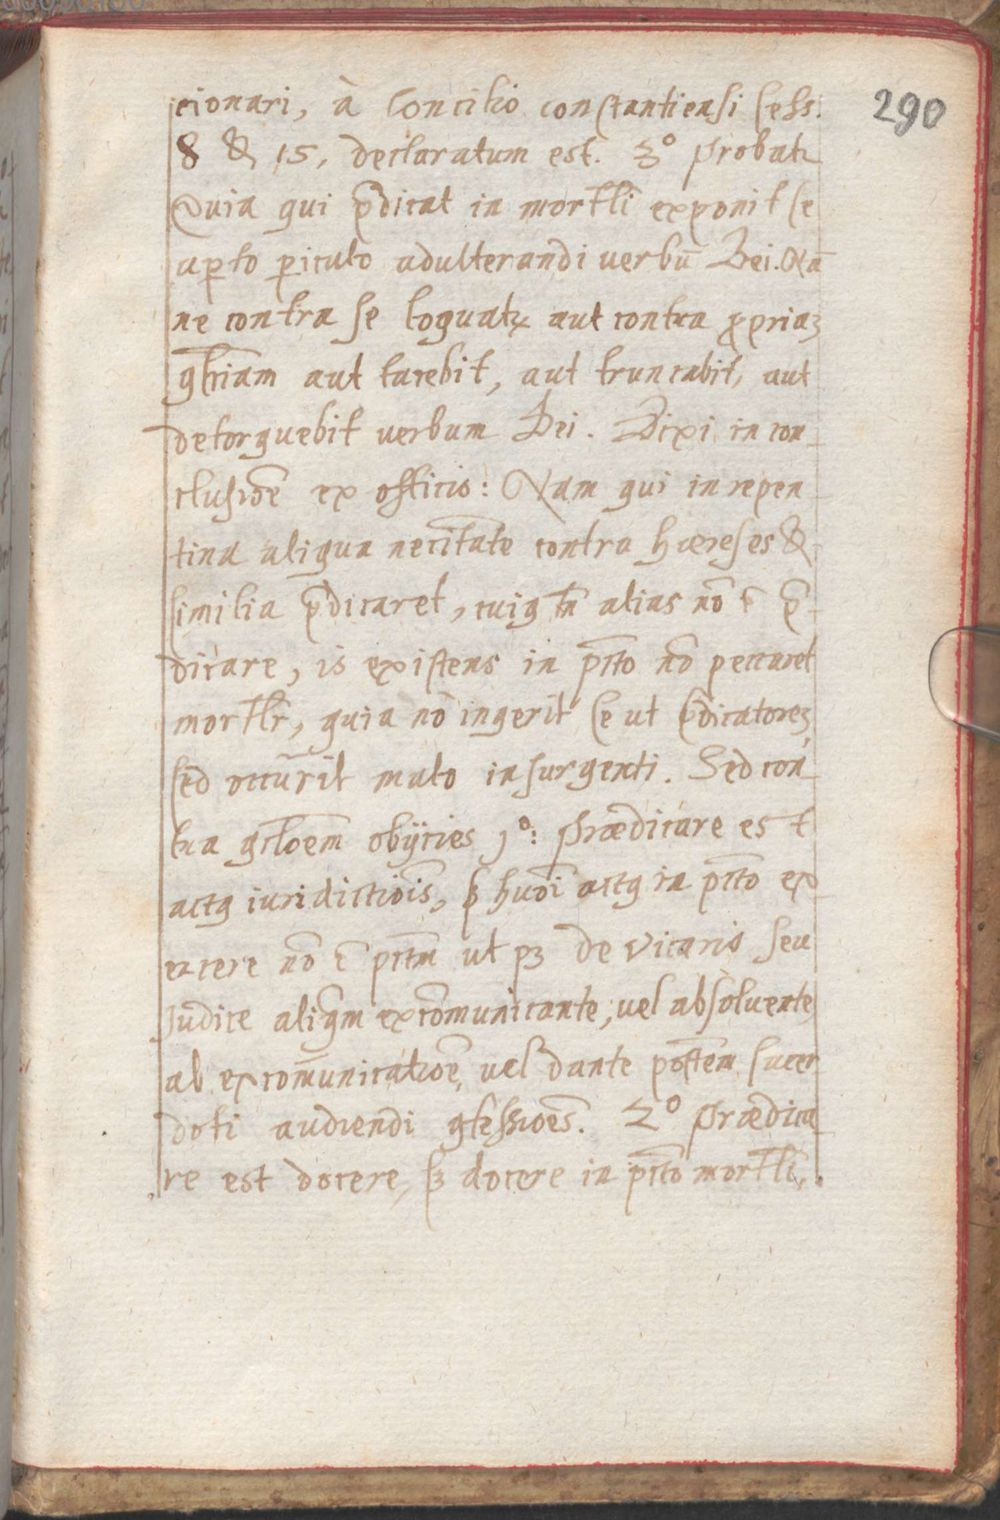 290
cionari, à Concilio constantiensi sess.
8 & 15, declaratum est. 3º probatꝛ
Quia qui p̄dicat in mortłi exponit se
aꝑto ꝑiculo adulterandi verbū Dei. Nā
ne contra se loquatꝛ aut contra ꝓpriaꝫ
głriam aut tacebit, aut truncabit, aut
detorquebit verbum Dei. Dixi in con
clusiōe ex officio: Nam qui in repen
tina aliqua necītate contra hæreses &
similia p̄dicaret, cuiꝯ tn̄ alias nō ē p̄
dicare, is existens in pc̄to nō peccaret
mortłr, quia nō ingerit se ut p̄dicatoreꝫ
sed occurrit malo insurgenti. Sed con
tra ꝯcłoem obijcies 1º: Prædicare est
actꝯ iuridictiōis, sꝫ huōi actꝯ in pc̄to ex
ercere nō ē pctm̄ ut pꝫ de vicario seu
Judice aliqm̄ excōmunicante, vel absolvente
ab excōmunicatiōe, vel dante potestem̄ sacer
doti audiendi ꝯfessioēs. 2º Prædica
re est docere, sꝫ docere in pc̄to mortłi,